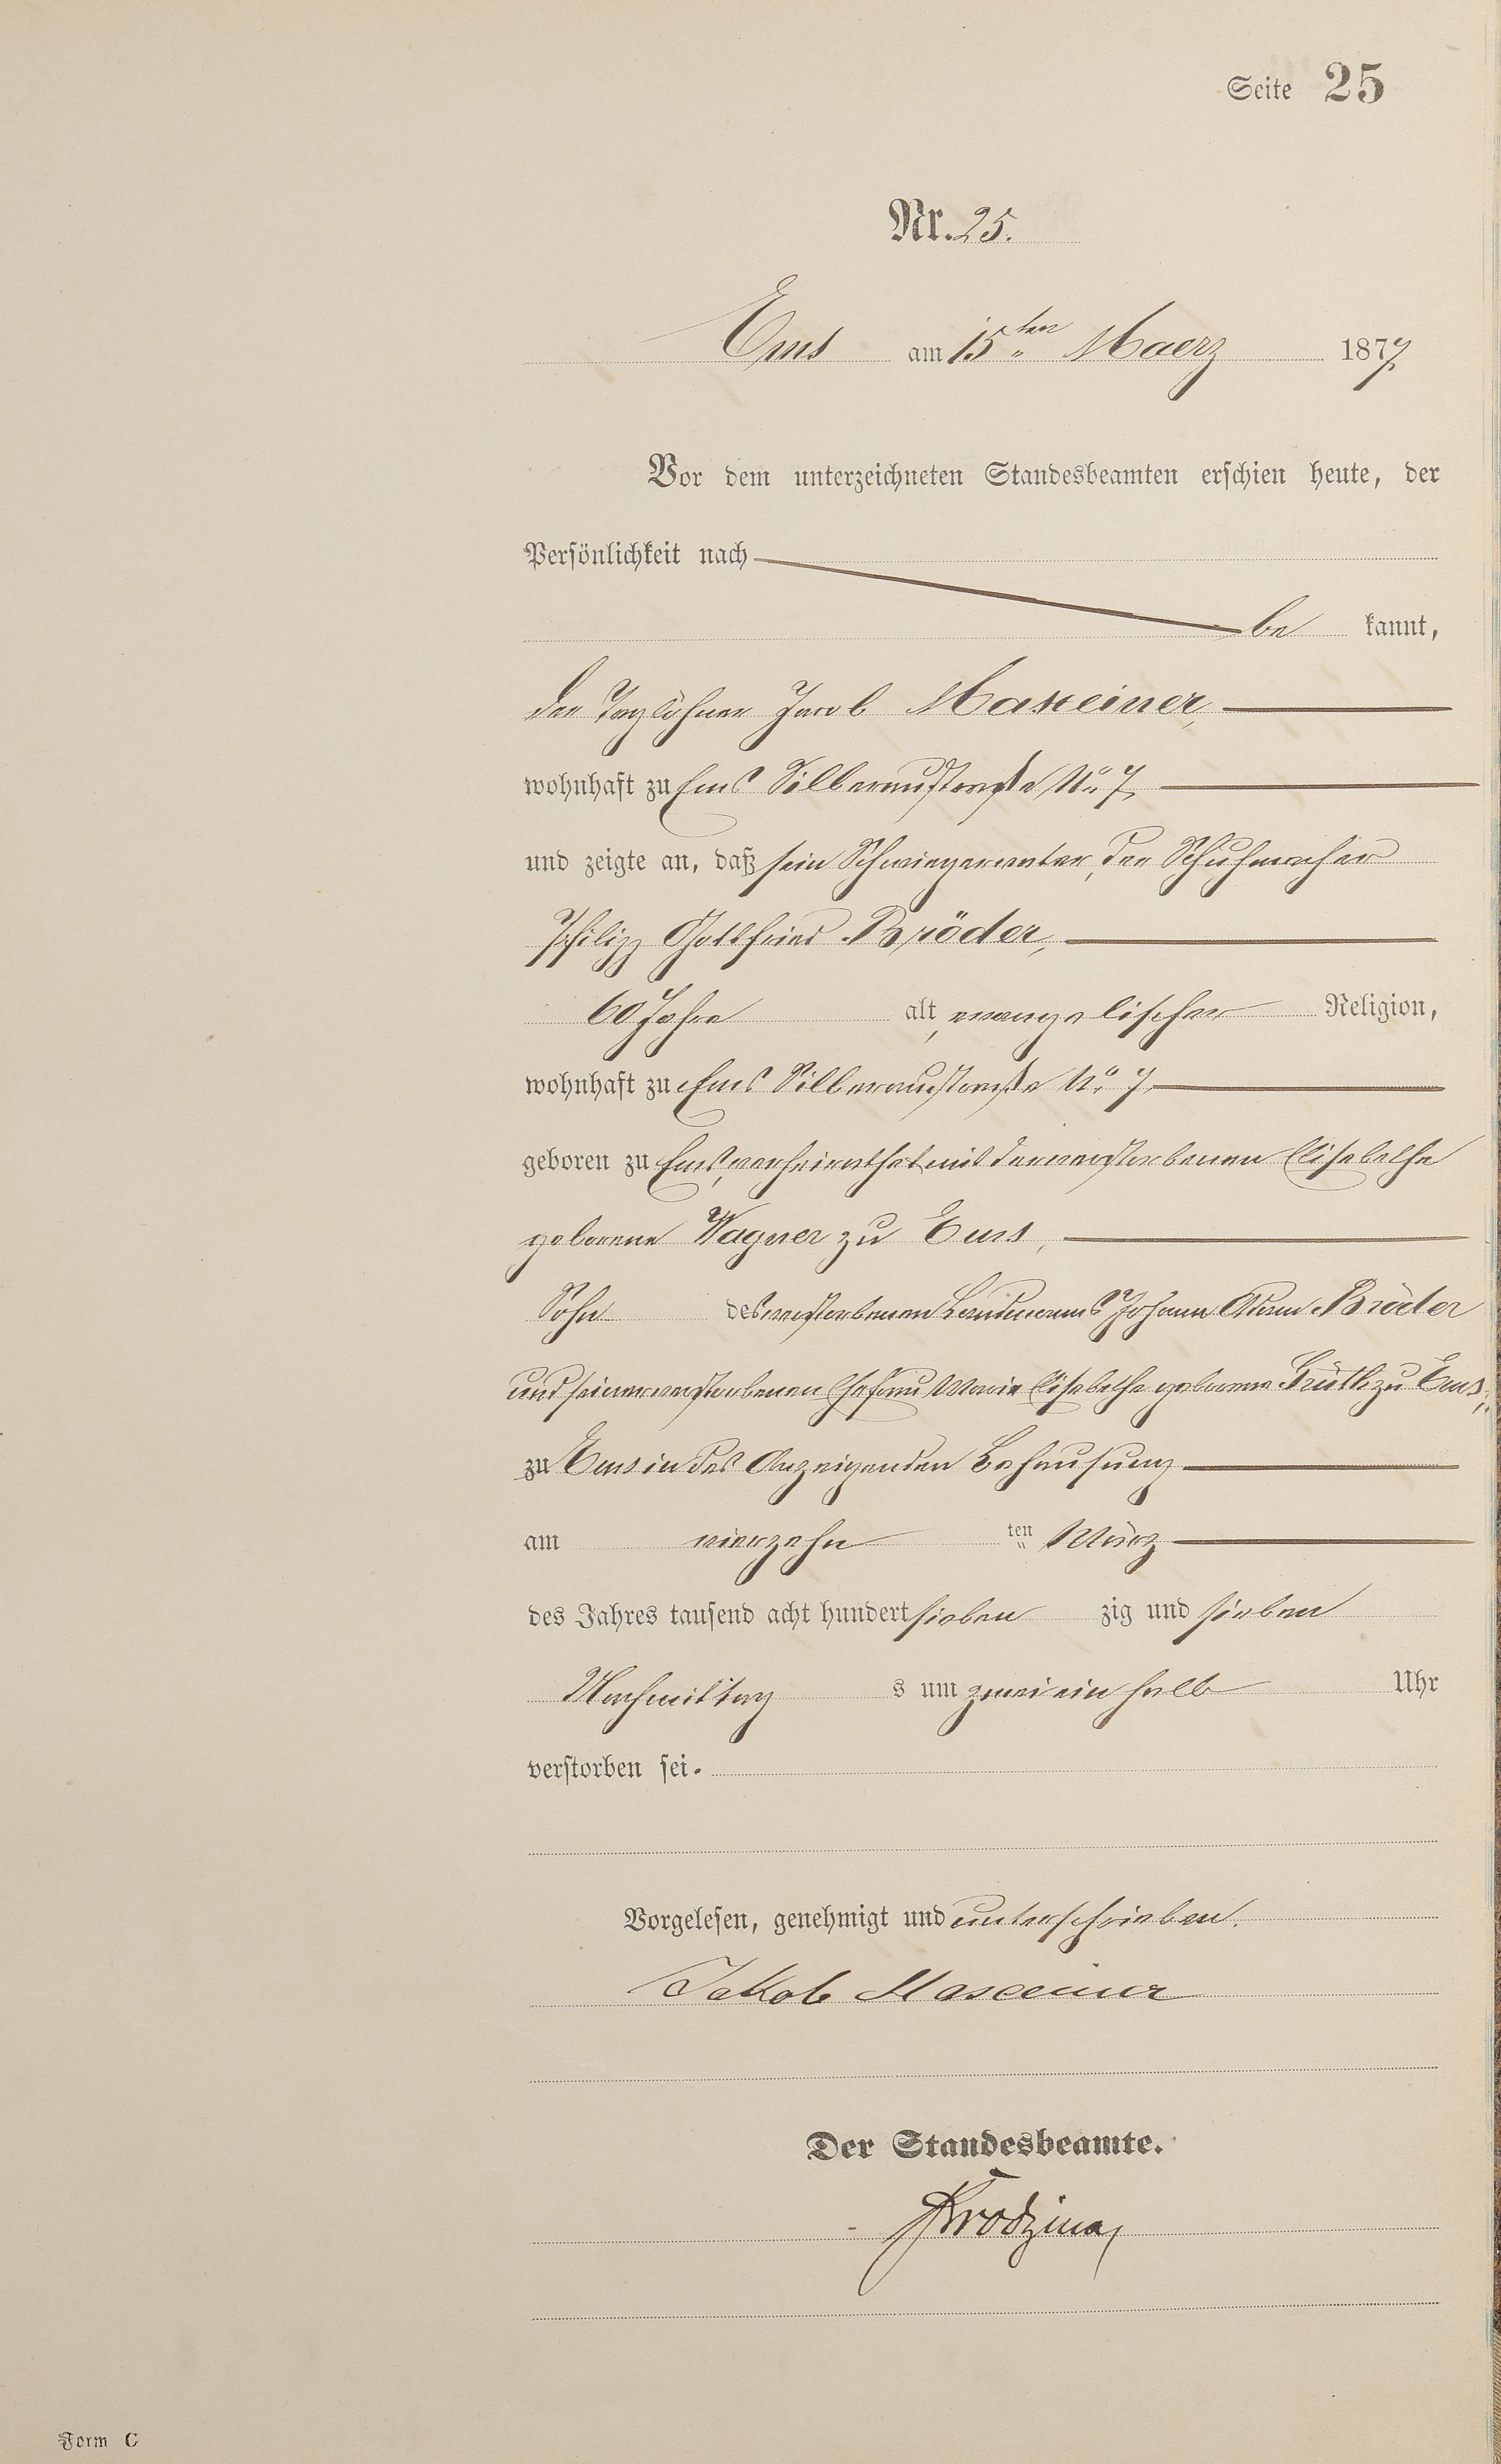 Seite 25
Nr. 25.
Ems am 15ten Maerz 1877
Vor dem unterzeichneten Standesbeamten erschien heute, der
Persönlichkeit nach
be kannt,
der Taglöhner Jacob Maxeiner,
wohnhaft zu Ems Silberaustraße No 7,
und zeigte an, daß sein Schwiegervater, der Schuhmacher
Philipp Gottfried Bröder,
60 Jahre alt, evangelischer Religion,
wohnhaft zu Ems Silberaustraße No 7,
geboren zu Ems, verheirathet mit der verstorbenen Elisabethe
geborene Wagner zu Ems,
Sohn des verstorbenen Landmanns Johann Adam Bröder
und seiner verstorbenen Ehefrau Marie Elisabethe geborene zu Ems,
zu Ems in des Anzeigenden Behausung
am vierzehn ten März
des Jahres tausend acht hundert sieben zig und sieben
Nachmittag s um zwei ein halb Uhr
verstorben sei.
Vorgelesen, genehmigt und unterschrieben.
Jakob Maxeiner
Der Standesbeamte.
Form C